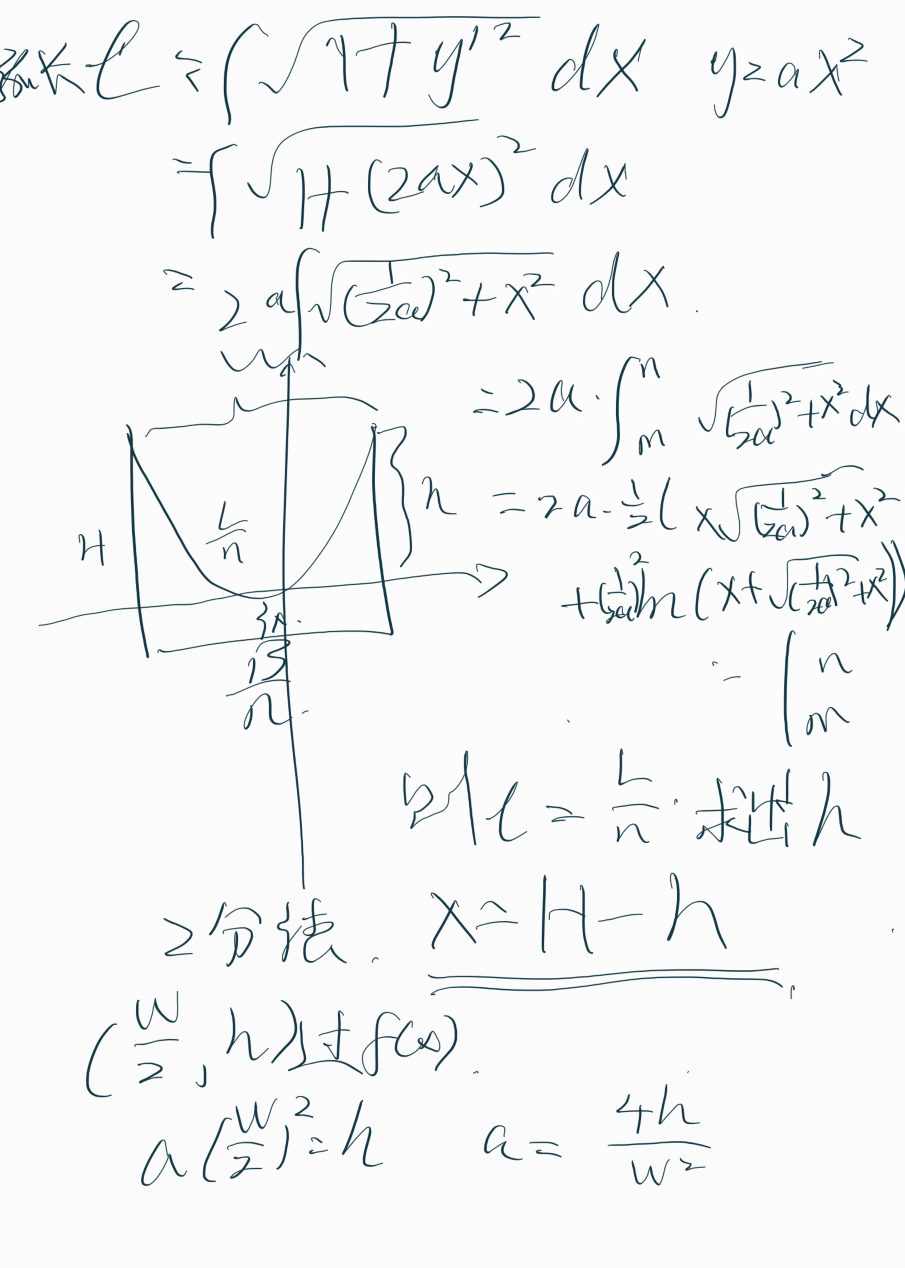 弧长 l = ∫ √(1+y'²) dx y=ax²
= ∫ √(1+(2ax)²) dx
= 2a ∫ √((1/2a)²+x²) dx.
W
= 2a · ∫_m^n √((1/2a)²+x²) dx
H L/n h
= 2a · 1/2 ( x√((1/2a)²+x²)
+(1/2a)² ln (x+√((1/2a)²+x²))
x.
B/n.
= | n m
以 l = L/n · 求出 h
2分法. x=H-h
(W/2, h) 过 f(x)
a(W/2)²=h a= 4h/W²